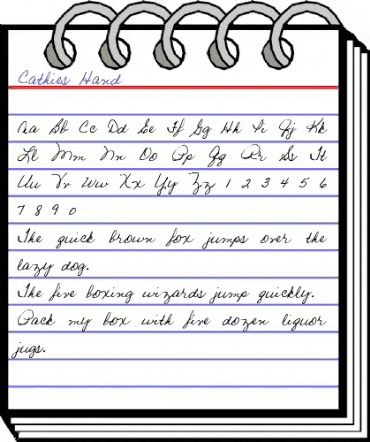 Cathies Hand
Aa Bb Cc Dd Ee Ff Gg Hh Ii Jj Kk
Ll Mm Nn Oo Pp Qq Rr Ss Tt
Uu Vv Ww Xx Yy Zz 1 2 3 4 5 6
7 8 9 0
The quick brown fox jumps over the
lazy dog.
The five boxing wizards jump quickly.
Pack my box with five dozen liquor
jugs.